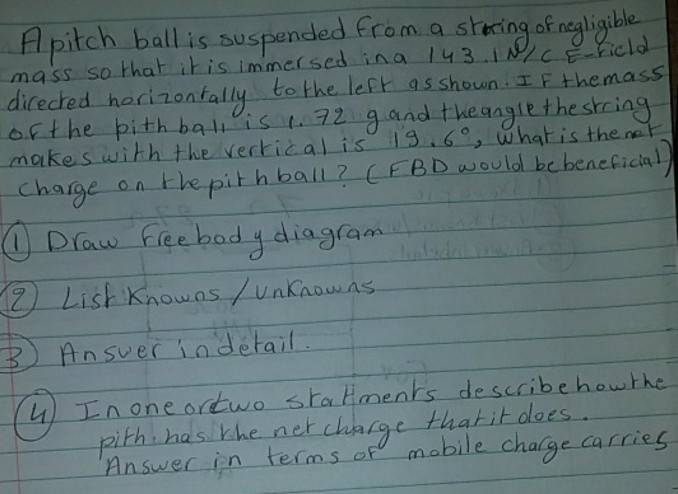 A pitch ball is suspended from a string of negligible
mass so that it is immersed in a 143.1 N/C E-field
directed horizontally to the left as shown. If the mass
of the pith ball is 1.72 g and the angle the string
makes with the vertical is 19.6°, what is the net
charge on the pith ball? (FBD would be beneficial)
① Draw free body diagram
② List Knowns / Unknowns
③ Answer in detail.
④ In one or two statments describe how the
pith has the net charge that it does.
Answer in terms of mobile charge carries